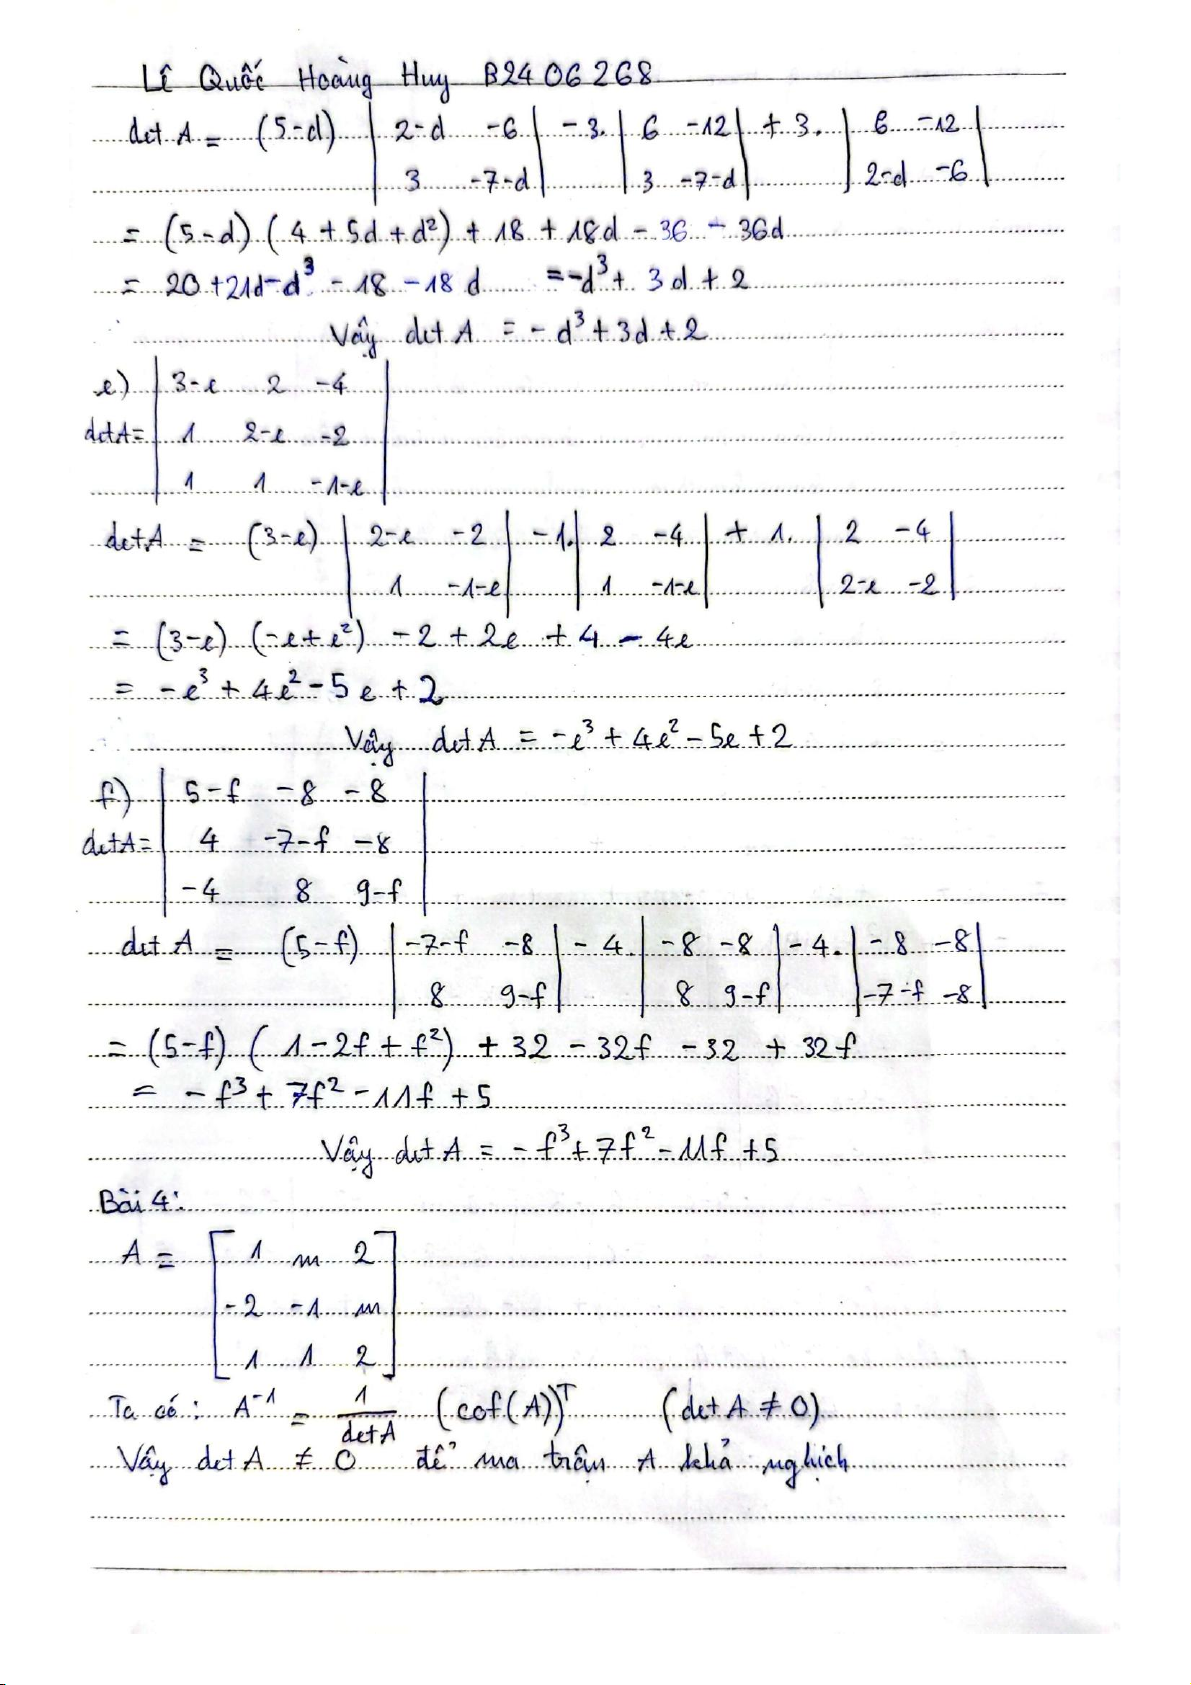 Lê Quốc Hoàng Huy B2406268
det A = (5-d) | 2-d -6 | - 3. | 6 -12 | + 3. | 6 -12 |
| 3 -7-d | | 3 -7-d | | 2-d -6 |
= (5-d) (4 + 5d + d²) + 18 + 18d - 36 - 36d
= 20 + 21d - d³ - 18 - 18 d = -d³ + 3d + 2
Vậy det A = - d³ + 3d + 2
e) | 3-e 2 -4 |
det A = | 1 2-e -2 |
| 1 1 -1-e |
det A = (3-e) | 2-e -2 | - 1. | 2 -4 | + 1. | 2 -4 |
| 1 -1-e | | 1 -1-e | | 2-e -2 |
= (3-e) (-e + e²) - 2 + 2e + 4 - 4e
= -e³ + 4e² - 5e + 2
Vậy det A = -e³ + 4e² - 5e + 2
f) | 5-f -8 -8 |
det A = | 4 -7-f -8 |
| -4 8 9-f |
det A = (5-f) | -7-f -8 | - 4. | -8 -8 | - 4. | -8 -8 |
| 8 9-f | | 8 9-f | | -7-f -8 |
= (5-f) (1 - 2f + f²) + 32 - 32f - 32 + 32f
= - f³ + 7f² - 11f + 5
Vậy det A = - f³ + 7f² - 11f + 5
Bài 4:
A = [ 1 m 2 ]
[ -2 -1 m ]
[ 1 1 2 ]
Ta có: A⁻¹ = 1/det A (cof(A))ᵀ (det A ≠ 0)
Vậy det A ≠ 0 để ma trận A khả nghịch